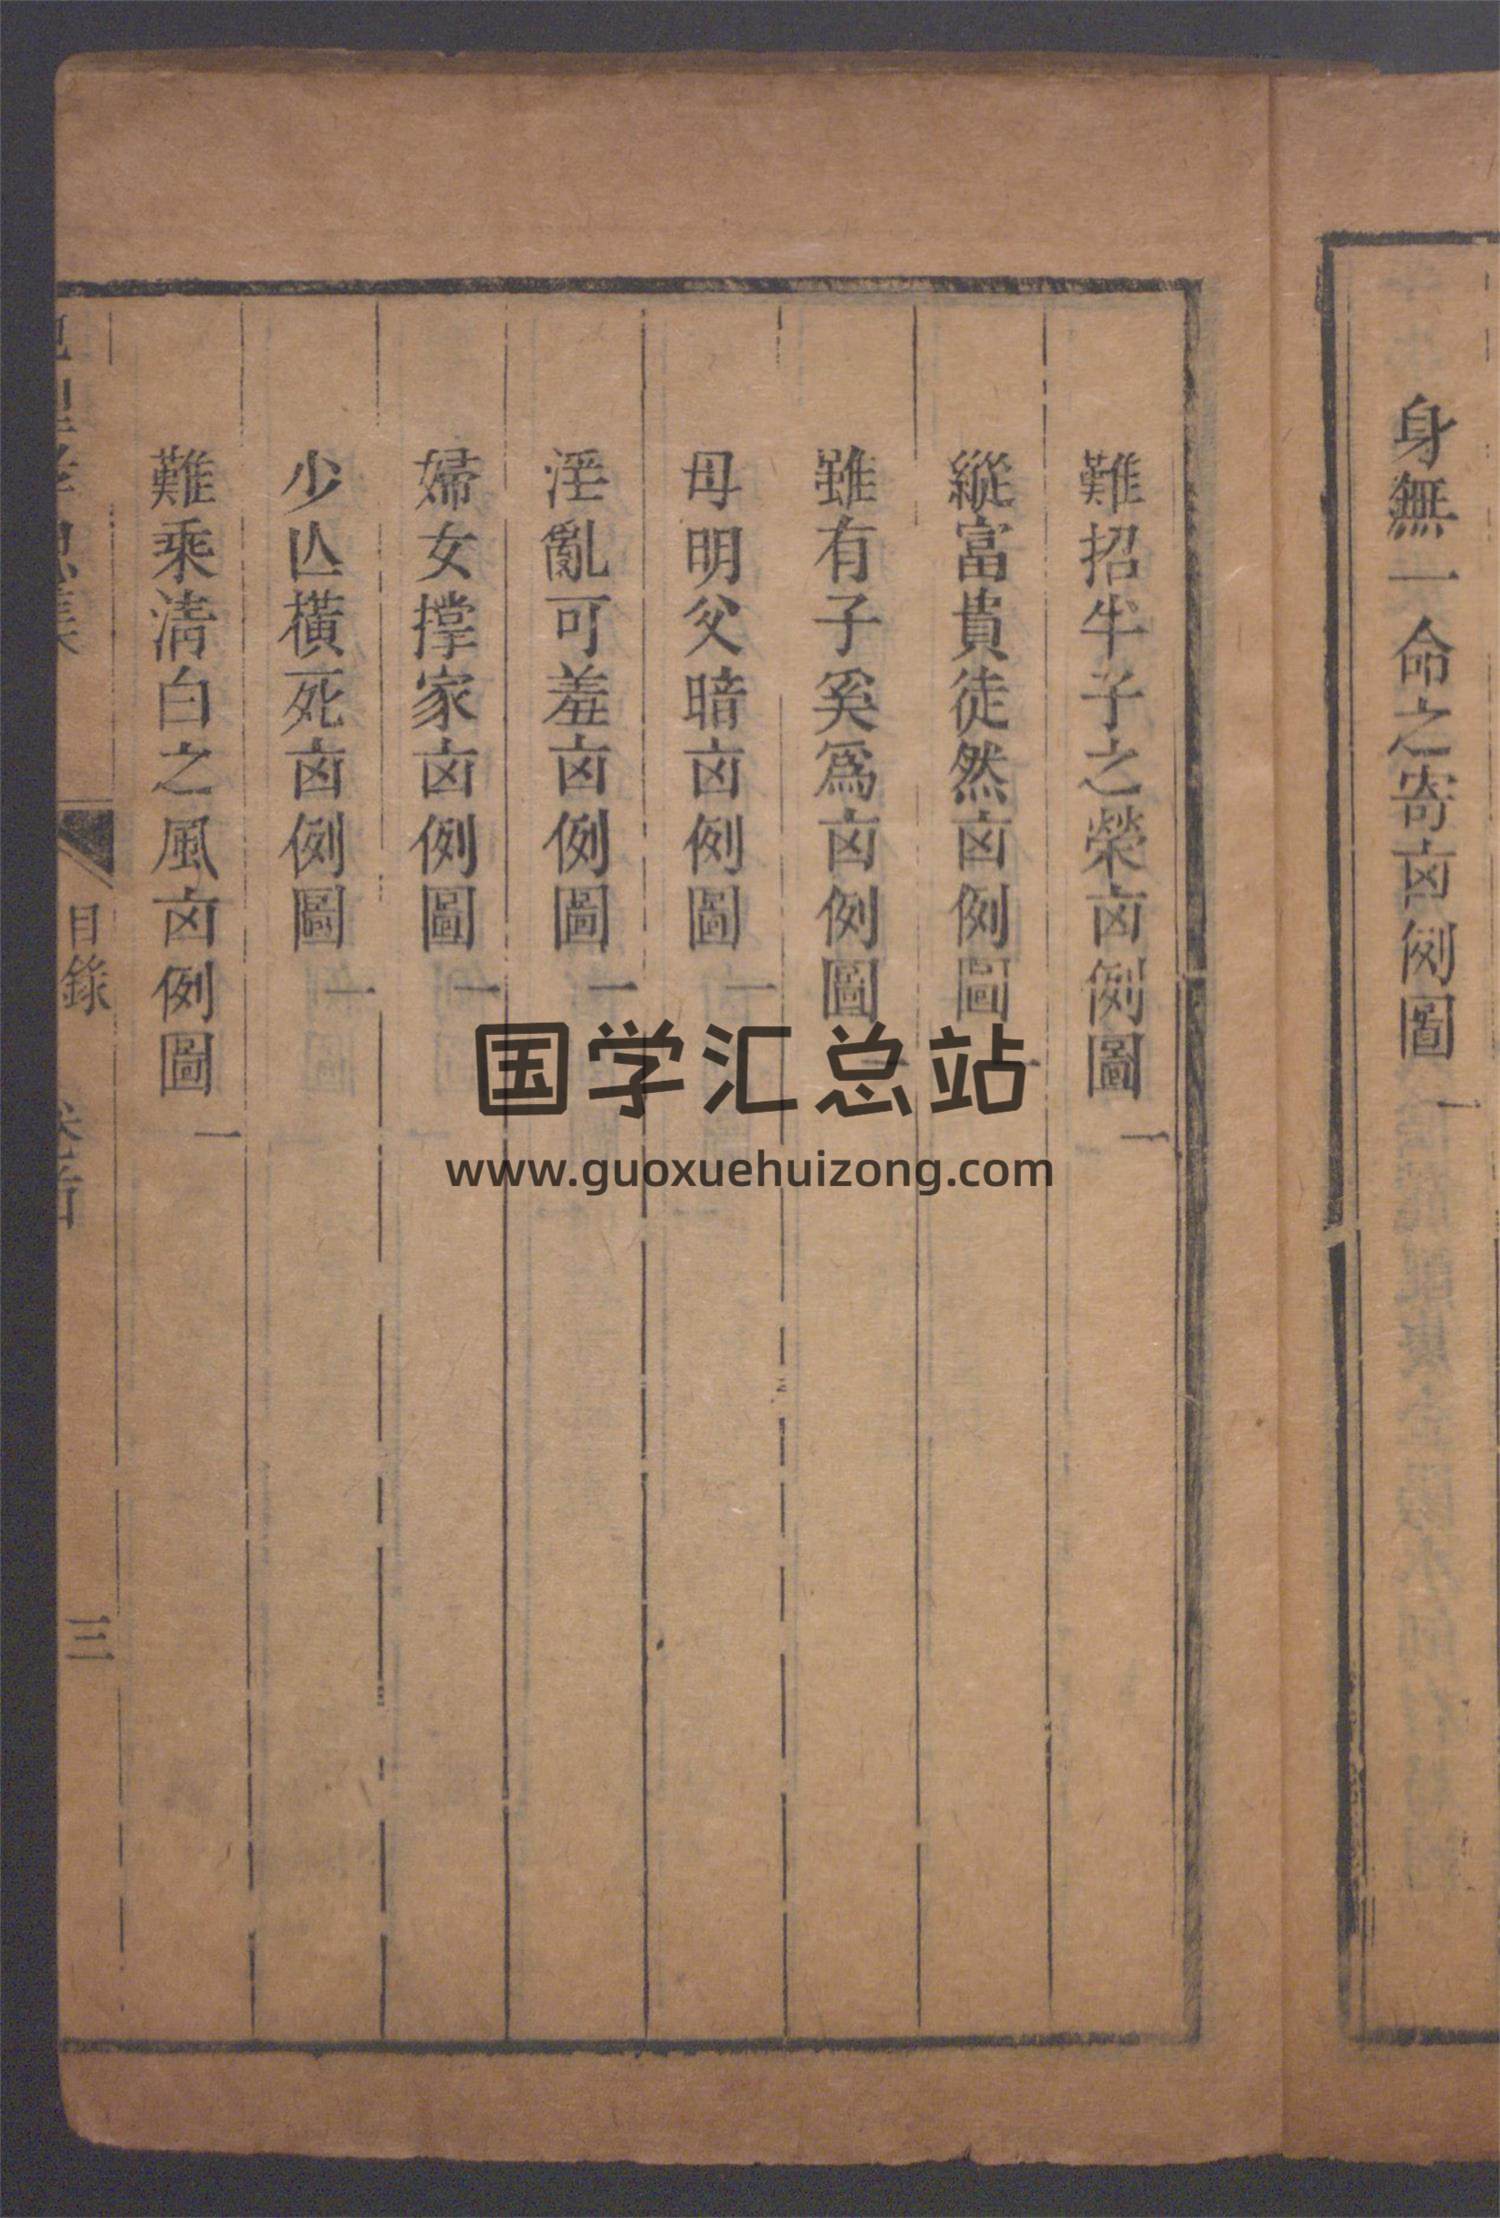 身無一命之寄㐫例圖一
難招半子之榮㐫例圖一
縱富貴徒然㐫例圖一
雖有子奚爲㐫例圖一
母明父暗㐫例圖一
淫亂可羞㐫例圖一
婦女撑家㐫例圖一
少亾橫死㐫例圖一
難乘清白之風㐫例圖一
目錄
三
国学汇总站
www.guoxuehuizong.com